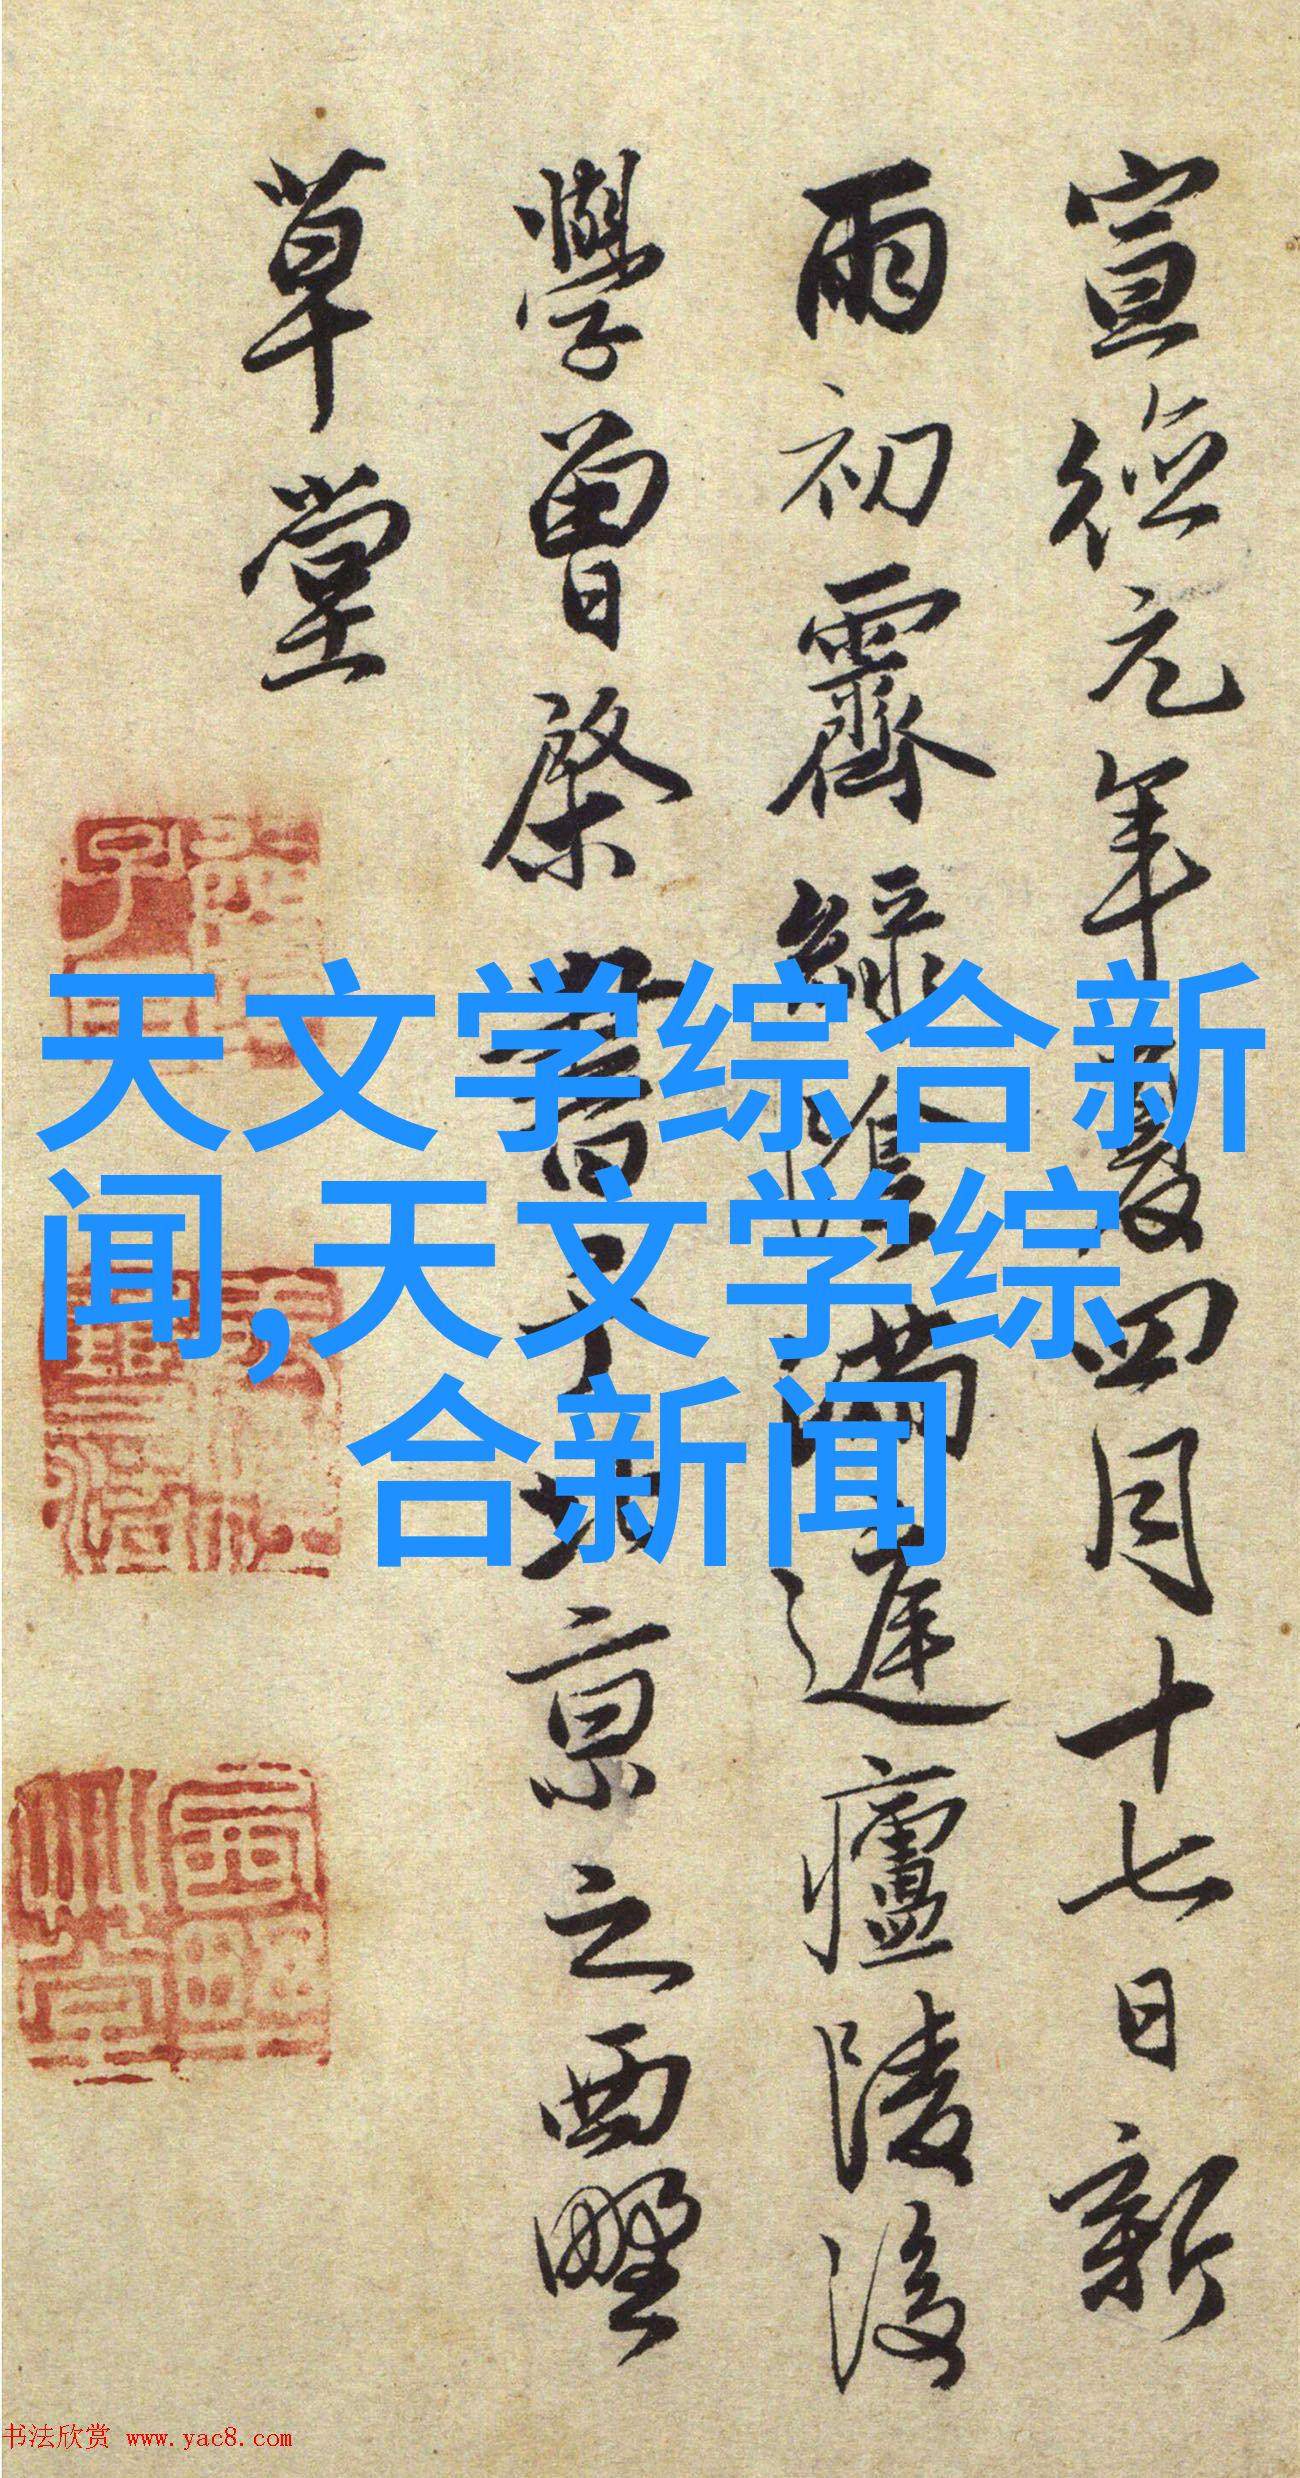 宣德元年夏四月十七日新
雨初霽綠陰滿庭廬陵後
學曾棨書于北京之西墅
草堂
天文学综合新
闻,天文学综
合新闻
书法欣赏 www.yac8.com